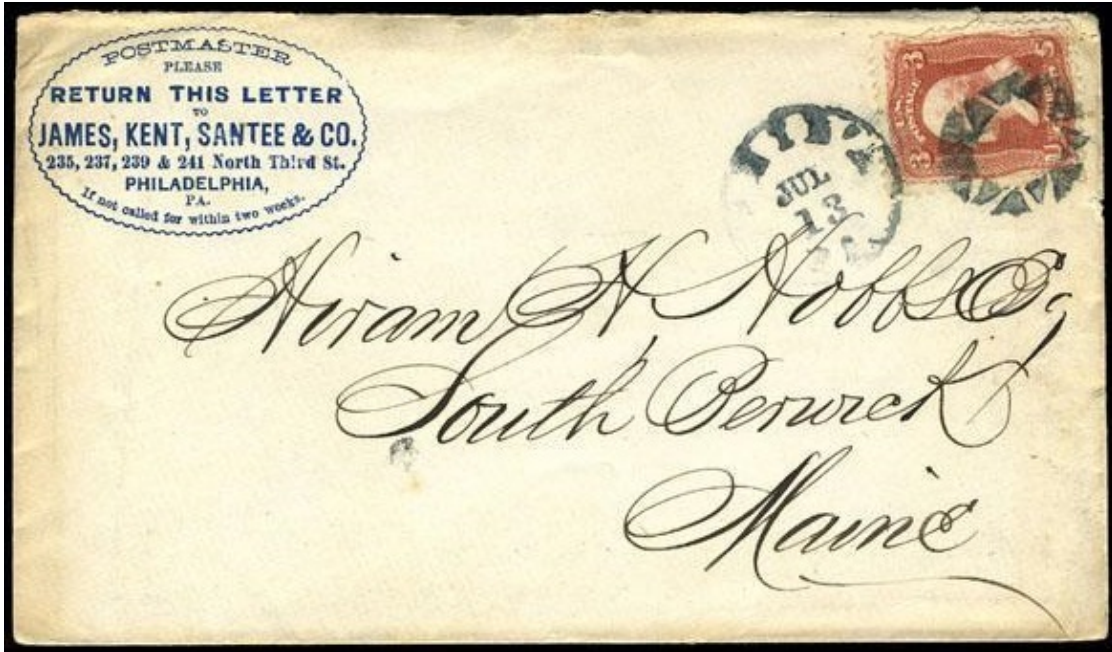 POSTMASTER
PLEASE
RETURN THIS LETTER
TO
JAMES, KENT, SANTEE & CO.
235, 237, 239 & 241 North Third St.
PHILADELPHIA,
PA.
If not called for within two weeks.
3 3
U.S. POSTAGE
JUL
13
Hiram H Hobbs Esq
South Berwick
Maine